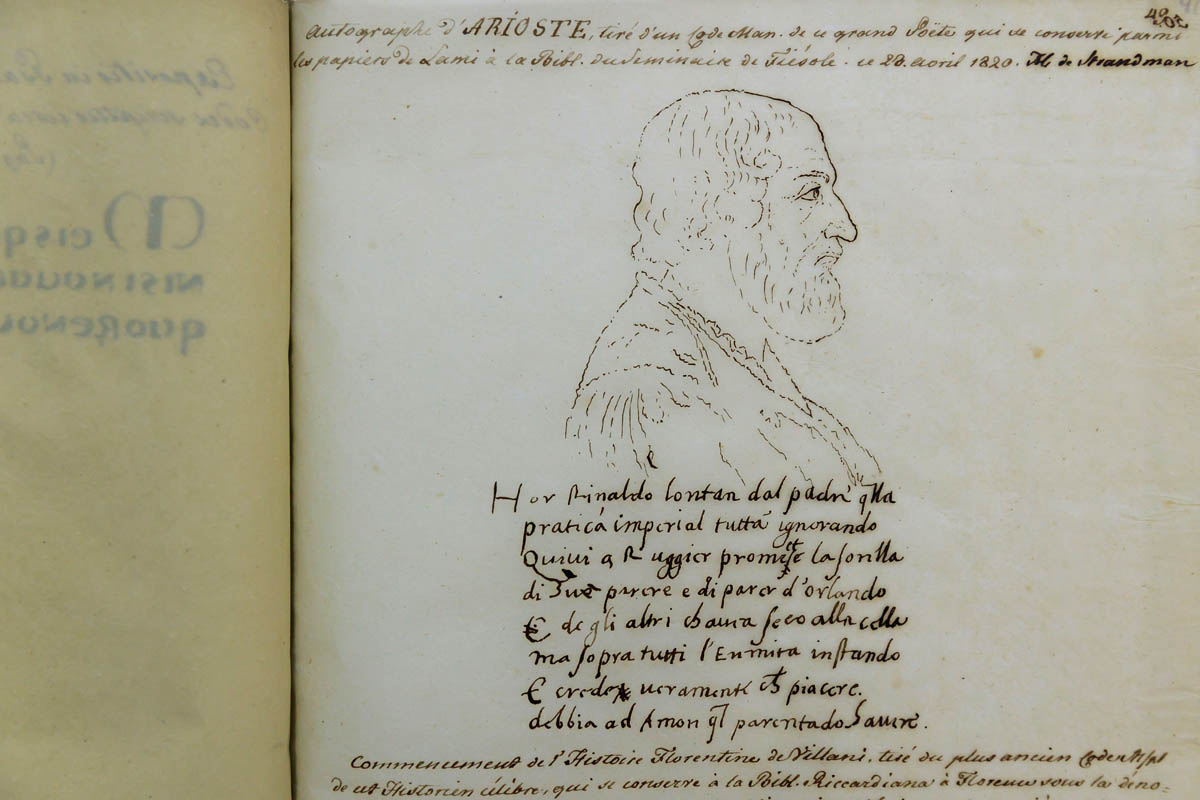 Autographe d'ARIOSTE, tiré d'un Code Man. de ce grand Poëte qui se conserve parmi
les papiers de Lami à la Bibl. du Seminaire de Fiésole. ce 28. avril 1820. M. de Strandman
Hor Rinaldo lontan dal padre qlla
pratica imperial tutta ignorando
Quivi a Ruggier promise la sorella
di suo parere e di parer d'Orlando
E de gli altri ch avea seco alla cella
ma sopra tutti l'Eremita instando
E crede veramente ch piacere.
debbia ad Amon ql parentado havere.
Commencement de l'Histoire Florentine de Villani, tiré du plus ancien Code
de cet Historien célèbre, qui se conserve à la Bibl. Riccardiana à Florence sous la déno-